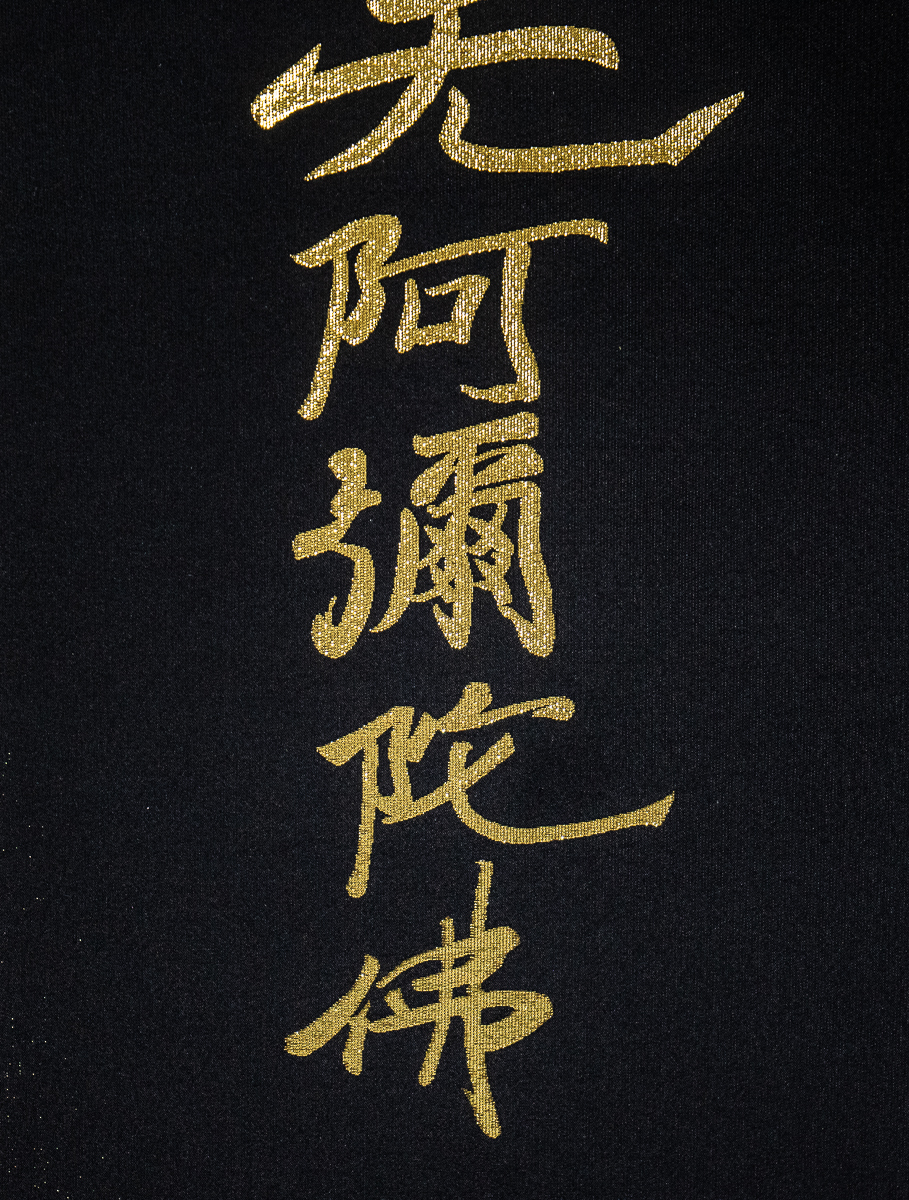 无阿彌陀佛